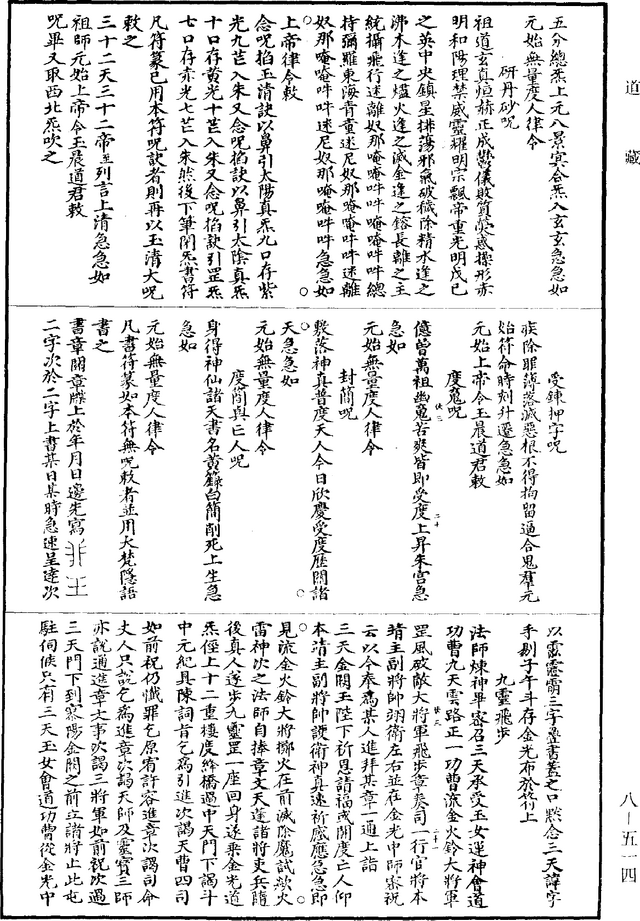 道藏
五分總炁上元八景冥合炁入玄玄急急如
元始無量度人律令
研丹砂呪
祖道玄真烜赫正成驚儀敗質熒惑操形赤
明和陽理禁威靈耀明宗飄帝重光明戊巳
之英中央鎮星排蕩邪氣破穢除精水逢之
沸木逢之燼火逢之滅金逢之鎔長離之主
統攝飛行迷離奴那唵唵吽吽唵唵吽吽總
持彌羅東海青童迷尼奴那唵唵吽吽迷離
奴那唵唵吽吽迷尼奴那唵唵吽吽急急如
上帝律令敕
念呪掐玉清訣以鼻引太陽真炁九口存紫
光九芒入朱又念呪掐訣以鼻引太陰真炁
十口存黃光十芒入朱又念呪掐訣引罡炁
七口存赤光七芒入朱然後下筆閉炁書符
凡符篆已用本符呪訣者則再以玉清大呪
敕之
三十二天三十二帝並列言上清急急如
祖師元始上帝令玉晨道君敕
呪畢又取西北炁吹之
受鍊押字呪
疾除罪簿落滅惡根不得拘留逼合鬼羣元
始符命時刻升遷急急如
元始上帝令玉晨道君敕
度魂呪
億曾萬祖幽魂苦爽皆即受度上昇朱宮急
急如
元始無量度人律令
封簡呪
敷落神真普度天人今日欣慶受度歷關諸
天急急如
元始無量度人律令
度簡與亡人呪
身得神仙諸天書名黃籙白簡削死上生急
急如
元始無量度人律令
凡書符篆如本符無呪敕者並用大梵隱語
書之
書章關章牒上於年月日邊先寫
二字次於二字上書某日某時急速呈達次
以霐靋霛三字疊書蓋之口默念三天諱字
手剔子午斗存金光布於符上
九靈飛步
法師煉神畢密召三天承受玉女運神會道
功曹九天雲路正一功曹流金火鈴大將軍
罡風破敵大將軍飛步章奏司一行官將本
靖主副將帥翊衛左右並在金光中師密祝
云以今奉為某人進拜某章一通上詣
三天金闕玉陛下祈恩請福或開度亡人仰
本靖主副將帥護衛神真速祈感應急急即
見流金火鈴大將擲火在前滅除魔試歘火
雷神次之法師自捧章文天蓬諸將吏兵隨
後真人遂步九靈罡一座回身遂乘金光道
炁徑上十二重樓度絳橋過中天門下謁斗
中元紀具陳詞旨乞為引進次謁天曹四司
如前祝仍懺罪乞原宥許容進章次謁司命
丈人只說乞為進章次謁天師及靈寶三師
亦說通進章文事次謁三將軍如前祝次過
三天門下到寥陽金闕之前立諸將止此屯
駐伺候只有三天玉女會道功曹從金光中
八—五一四